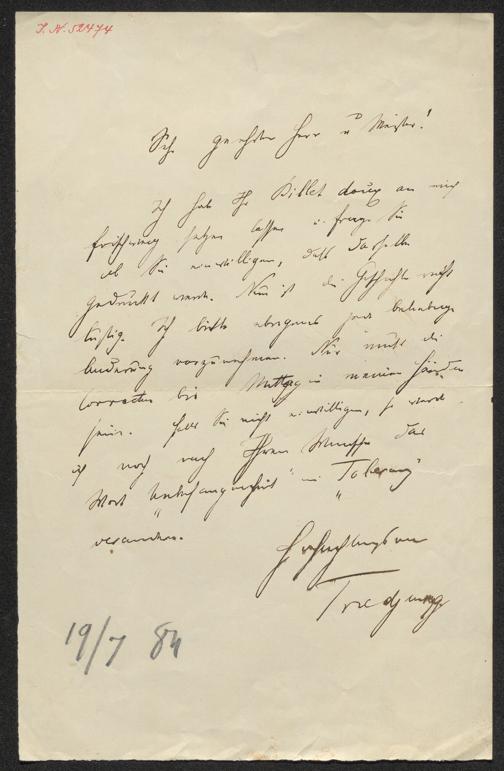 J. N. 52474
Sehr geehrter Herr u Meister!
Ich habe Ihr Billet doux an mich
frischweg setzen lassen u. frage Sie
ob Sie einwilligen, daß dasselbe
gedruckt werde. Nun ist die Geschichte recht
lustig. Ich bitte übrigens jede beliebige
Änderung vorzunehmen. Nur muß die
Correctur bis Mittag in meinen Händen
sein. Falls Sie nicht einwilligen, so werde
ich noch nach Ihrem Wunsche das
Wort "Unbefangenheit" in "Toleranz"
verändern.
Hochachtungsvoll
Friedjung
19/7 84